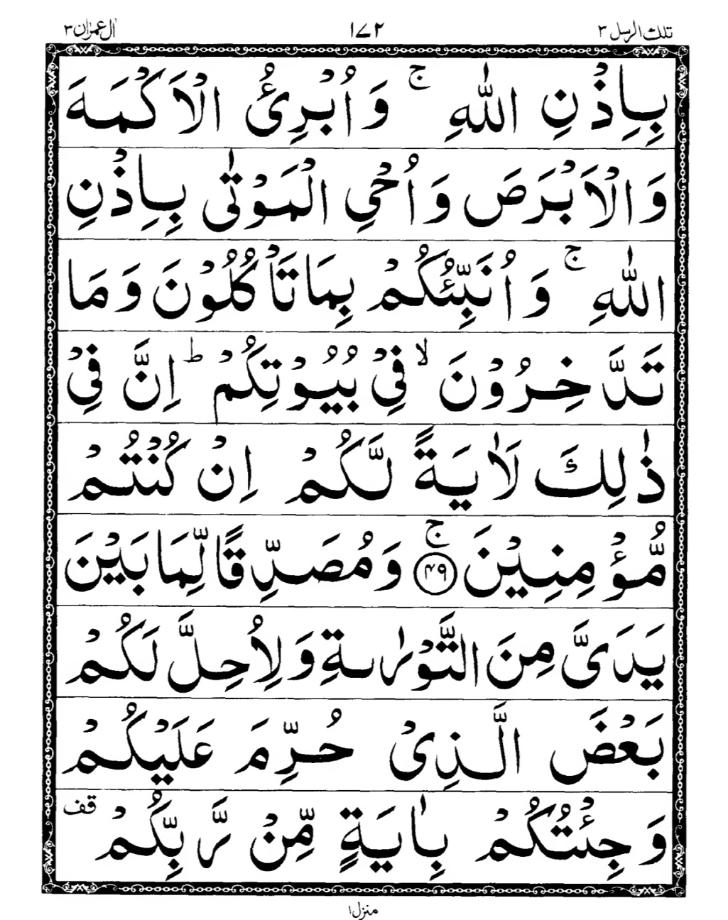 تلك الرسل ٣ ١٧٢ اٰل عمرٰن ٣
بِاِذْنِ اللّٰهِ ۚ وَاُبْرِئُ الْاَكْمَهَ
وَالْاَبْرَصَ وَاُحْيِ الْمَوْتٰى بِاِذْنِ
اللّٰهِ ۚ وَاُنَبِّئُكُمْ بِمَا تَاْكُلُوْنَ وَمَا
تَدَّخِرُوْنَ ۙ فِيْ بُيُوْتِكُمْ ؕ اِنَّ فِيْ
ذٰلِكَ لَاٰيَةً لَّكُمْ اِنْ كُنْتُمْ
مُّؤْمِنِيْنَ ۚ ﴿۴۹﴾ وَمُصَدِّقًا لِّمَا بَيْنَ
يَدَيَّ مِنَ التَّوْرٰىةِ وَلِاُحِلَّ لَكُمْ
بَعْضَ الَّذِيْ حُرِّمَ عَلَيْكُمْ
وَجِئْتُكُمْ بِاٰيَةٍ مِّنْ رَّبِّكُمْ قف
منزل ١